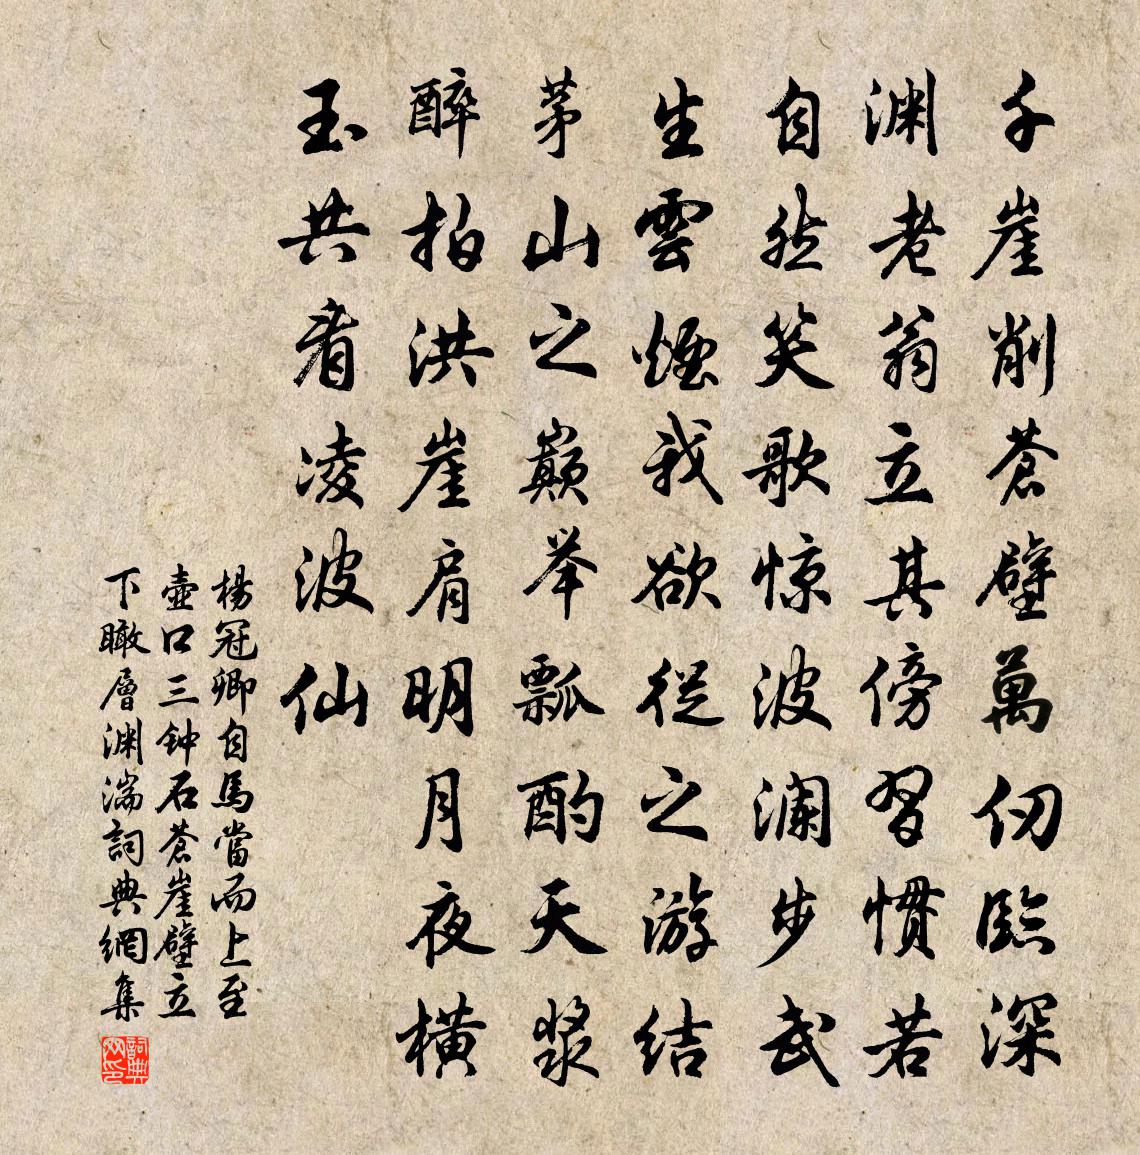 千崖削蒼壁萬仞臨深
渊老翁立其傍習慣若
自然笑歌惊波澜步武
生雲煙我欲從之游结
茅山之巔举瓢酌天漿
醉拍洪崖肩明月夜橫
玉共看凌波仙
楊冠卿自馬當而上至
壺口三钟石蒼崖壁立
下瞰層渊湍詞典網集
詞典
网印